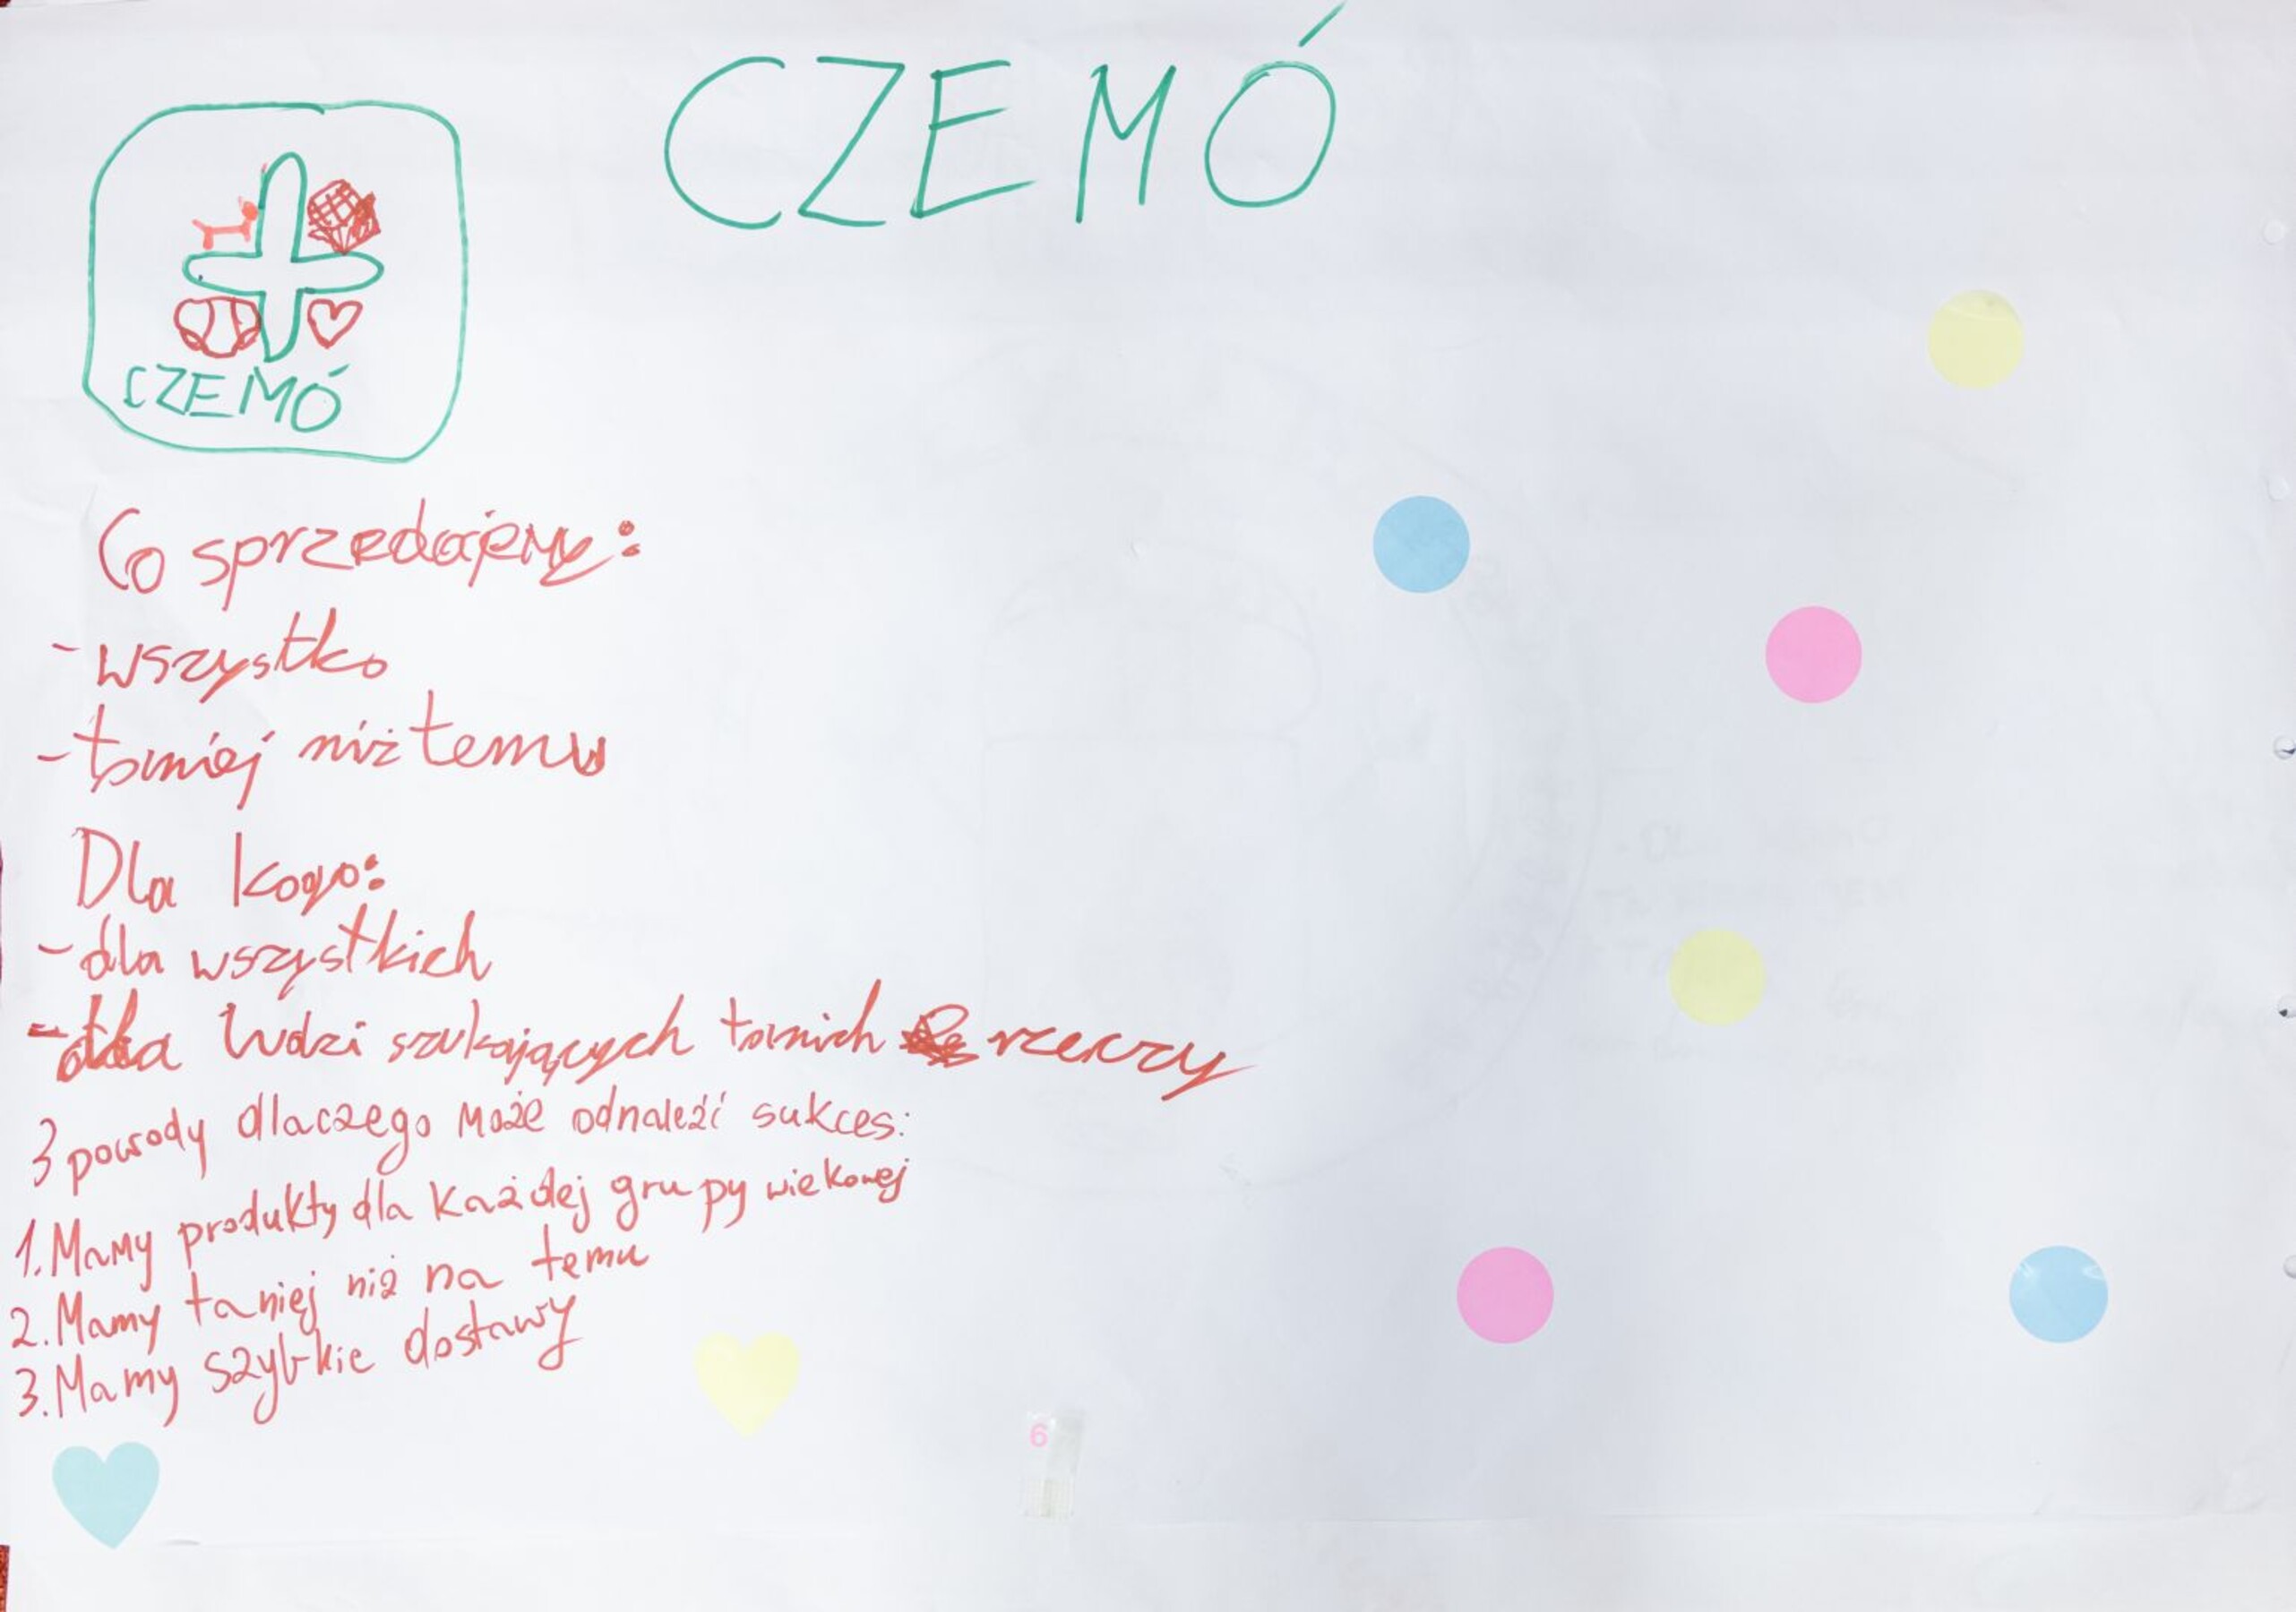 CZEMÓ
CZEMÓ
Co sprzedajemy:
- wszystko
- taniej niż temu
Dla kogo:
- dla wszystkich
- dla ludzi szukających tanich rzeczy
3 powody dlaczego może odnaleźć sukces:
1. Mamy produkty dla każdej grupy wiekowej
2. Mamy taniej niż na temu
3. Mamy szybkie dostawy
6